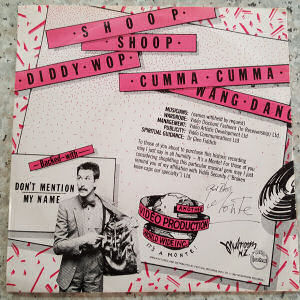 SHOOP
SHOOP
DIDDY·WOP·
·CUMMA·CUMMA·
WANG·DANG
MUSICIANS: (names withheld by request)
WARDROBE: Vidjo Discount Fashions (In Receivership) Ltd.
MANAGEMENT: Vidjo Artistic Development Ltd
PUBLICITY: Vidjo Communications Ltd
SPIRITUAL GUIDANCE: Dr Glen Fiddich
To those of you about to purchase this historic recording
may I just say in all humility - It's a Monte! For those of you
considering shoplifting this particular musical gem may I just
remind you of my affiliation with Vidjo Security ("Broken
knee-caps our specialty") Ltd
Backed-with
DON'T MENTION
MY NAME
VIDEO PRODUCTION
WORLD WIDE INC.
IT'S A MONTE!
Mushroom
N.Z.